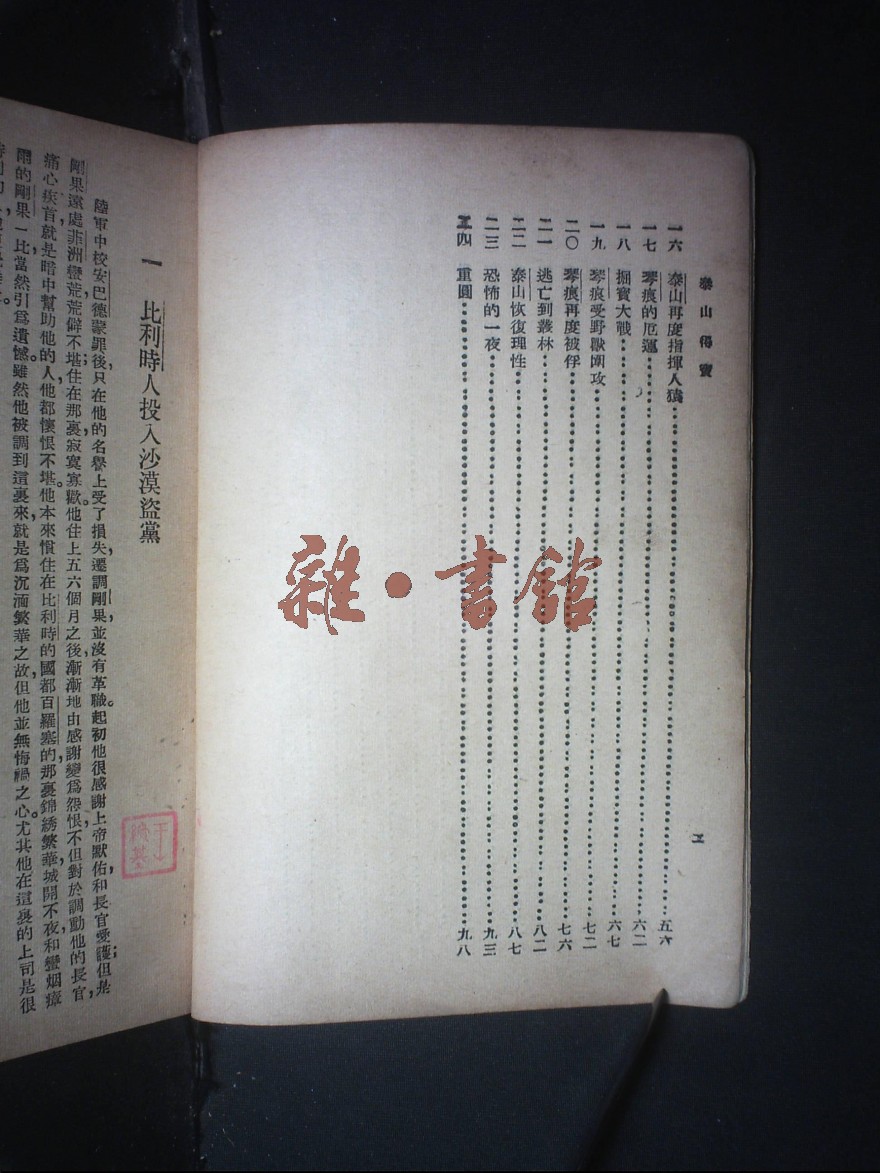 泰山得寶
一六 泰山再度指揮人猿 五六
一七 琴痕的厄運 六二
一八 掘寶大戰 六七
一九 琴痕受野獸圍攻 七二
二〇 琴痕再度被俘 七六
二一 逃亡到叢林 八二
二二 泰山恢復理性 八七
二三 恐怖的一夜 九三
二四 重圓 九八
雜·書館
一 比利時人投入沙漠盜黨
陸軍中校安巴德蒙罪後只在他的名譽上受了損失，遷調剛果並沒有革職。起初他很感謝上帝默佑和長官愛護；但是，
剛果遠處非洲蠻荒，荒僻不堪，住在那裏寂寞寡歡。他住上五六個月之後，漸漸地由感謝變爲怨恨，不但對於調動他的長官
痛心疾首，就是暗中幫助他的人，他都懷恨不堪。他本來慣住在比利時的國都百羅塞的，那裏錦綉繁華，城開不夜，和蠻烟瘴
的剛果一比，當然引爲遺憾。雖然他被調到這裏來，就是爲沉湎繁華之故，但他並無悔禍之心。尤其他在這裏的上司是很